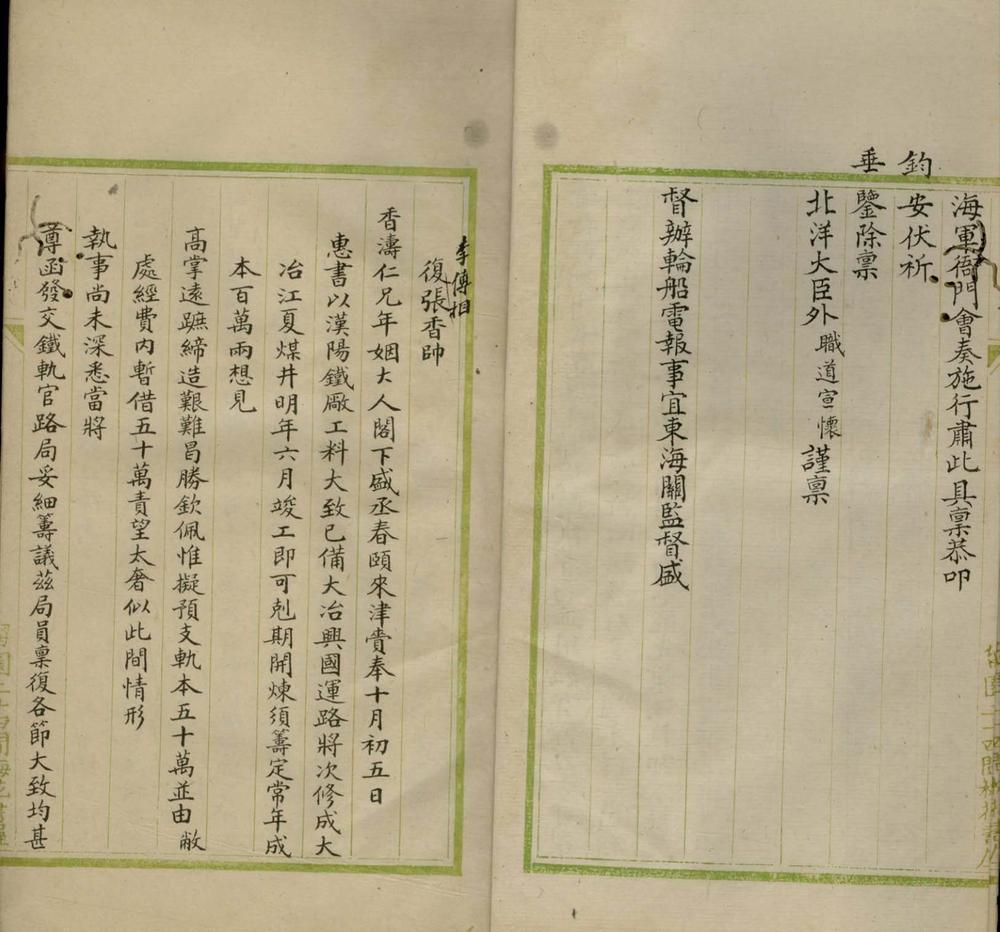 海軍衙門會奏施行肅此具稟恭叩
鈞安伏祈
垂鑒除稟
北洋大臣外職道宣懷謹稟
督辦輪船電報事宜東海關監督盛
李傅相
復張香帥
香濤仁兄年姻大人閣下盛丞春頤來津賫奉十月初五日
惠書以漢陽鐵厰工料大致已備大冶興國運路將次修成大
冶江夏煤井明年六月竣工即可剋期開煉須籌定常年成
本百萬兩想見
高掌遠蹠締造艱難曷勝欽佩惟擬預支軌本五十萬並由敝
處經費內暫借五十萬責望太奢似此間情形
執事尚未深悉當將
尊函發交鐵軌官路局妥細籌議茲局員稟復各節大致均甚